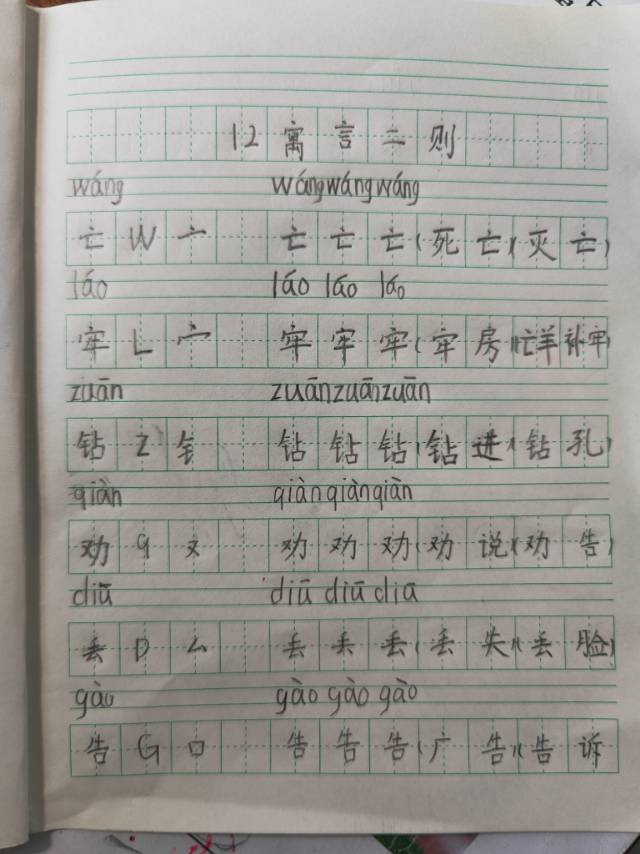 12寓言二则
wáng wángwángwáng
亡 W 亠 亡 亡 亡(死亡)(灭亡)
láo láo láo láo
牢 L 宀 牢 牢 牢(牢房)(亡羊补牢)
zuān zuānzuānzuān
钻 Z 钅 钻 钻 钻(钻进)(钻孔)
qiàn qiànqiànqiàn
劝 q 又 劝 劝 劝(劝说)(劝告)
diū diū diū dia
丢 D 厶 丢 丢 丢(丢失)(丢脸)
gào gào gào gào
告 G 口 告 告 告(广告)(告诉